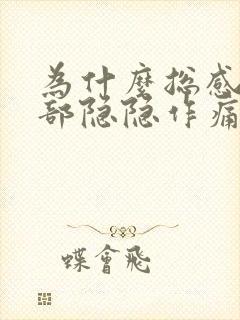 为什麼总感
部隐隐作痛
蝶會飛